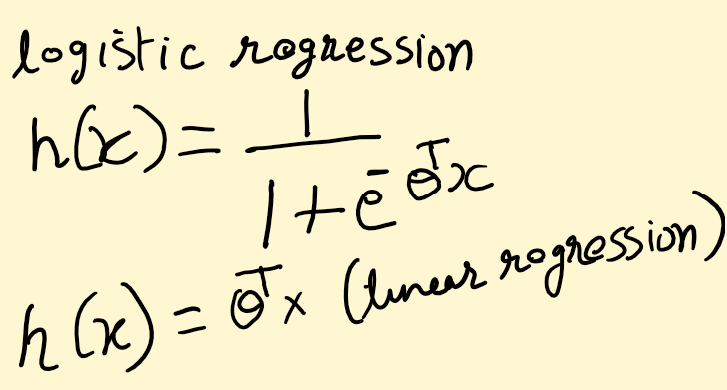 logistic rogression
h(x) = 1 / 1 + e^-θ^T x
h(x) = θ^T x (linear rogression)